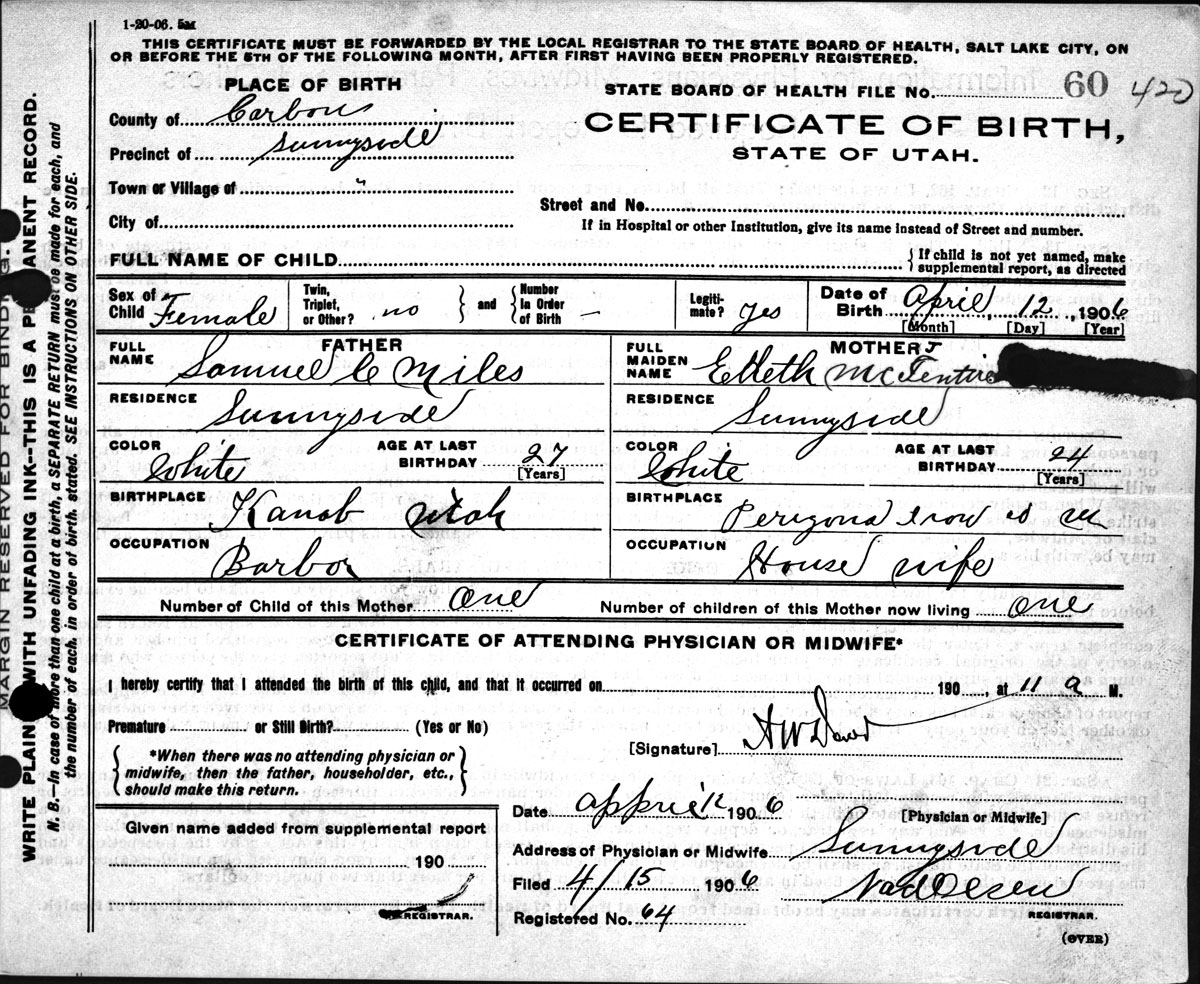 1-20-06. 5M
THIS CERTIFICATE MUST BE FORWARDED BY THE LOCAL REGISTRAR TO THE STATE BOARD OF HEALTH, SALT LAKE CITY, ON
OR BEFORE THE 5TH OF THE FOLLOWING MONTH, AFTER FIRST HAVING BEEN PROPERLY REGISTERED.
PLACE OF BIRTH
STATE BOARD OF HEALTH FILE No. 60 420
County of Carbon
CERTIFICATE OF BIRTH,
Precinct of Sunnyside
STATE OF UTAH.
Town or Village of "
Street and No.
City of
If in Hospital or other Institution, give its name instead of Street and number.
FULL NAME OF CHILD
{If child is not yet named, make
supplemental report, as directed
Sex of Child Female
Twin, Triplet, or Other? no } and { Number In Order of Birth —
Legitimate? yes
Date of Birth April, 12, 1906
[Month] [Day] [Year]
FATHER
FULL NAME Samuel C Miles
RESIDENCE
Sunnyside
COLOR White
AGE AT LAST BIRTHDAY 27
[Years]
BIRTHPLACE
Kanab Utah
OCCUPATION
Barbor
MOTHER
FULL MAIDEN NAME McIentire
RESIDENCE
Sunnyside
COLOR White
AGE AT LAST BIRTHDAY 24
[Years]
BIRTHPLACE
OCCUPATION
House wife
Number of Child of this Mother one
Number of children of this Mother now living one
CERTIFICATE OF ATTENDING PHYSICIAN OR MIDWIFE*
I hereby certify that I attended the birth of this child, and that it occurred on 190 , at 11 a M.
Premature or Still Birth? (Yes or No)
[Signature] H W
{ *When there was no attending physician or
midwife, then the father, householder, etc.,
should make this return. }
Date appril 12 1906
[Physician or Midwife]
Given name added from supplemental report
190
REGISTRAR.
Address of Physician or Midwife. Sunnyside
Filed 4/15 1906
Olsen
Registered No. 64
REGISTRAR.
(OVER)
MARGIN RESERVED FOR BINDING.
WRITE PLAINLY WITH UNFADING INK--THIS IS A PERMANENT RECORD.
N. B.--In case of more than one child at a birth, a SEPARATE RETURN must be made for each, and
the number of each, in order of birth, stated. SEE INSTRUCTIONS ON OTHER SIDE.